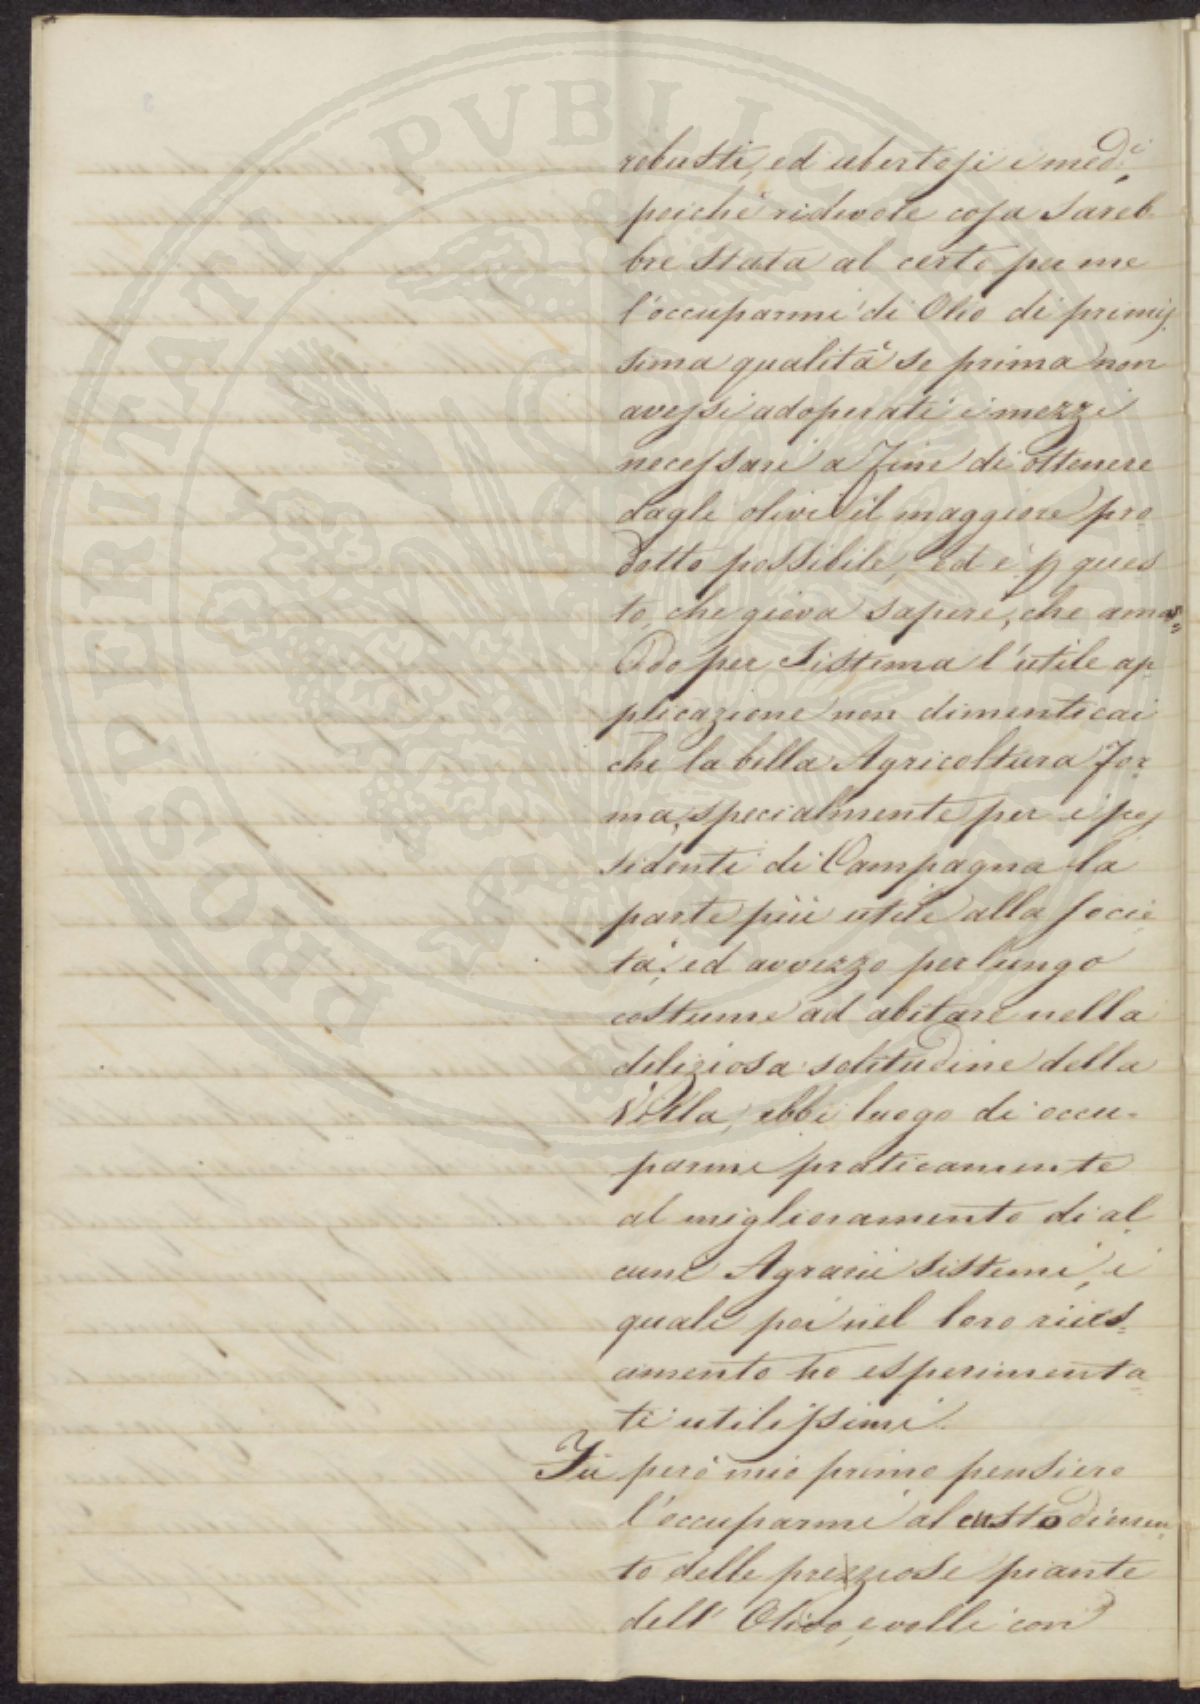 robusti, ed ubertosi i medi,
poichè ridevole cosa sareb
bre stata al certo per me
l'occuparmi di Olio di primis
sima qualità se prima non
avessi adoperati i mezzi
necessari a fine di ottenere
dagli olivi il maggiore pro
dotto possibile, ed è p ques
to, che giova sapere, che am
per sistema l'utile ap
plicazione non dimenticai
che la bella Agricoltura for
ma, specialmente per i pos
sidenti di Campagna la
parte più utile alla socie
tà: ed avvezzo per lungo
costume ad abitare nella
deliziosa solitudine della
Villa, ebbi luogo di occu=
parmi praticamente
al miglioramento di al
cuni Agrarii sistemi, i
quali poi nel loro
amento ho esperimenta=
ti utilissimi.
Fù però mio primo pensiero
l'occuparmi al custodimen
to delle prezziose piante
dell' Olivo, e volli con
PROSPERITATI PVBLICAE